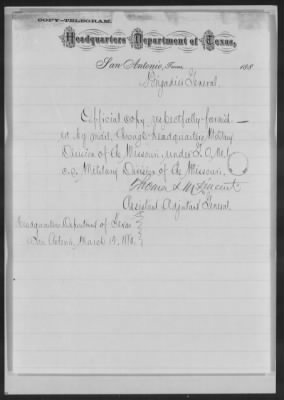 COPY-TELEGRAM.
Headquarters Department of Texas,
San Antonio, Texas, 188
Brigadier General.
Official copy respectfully furnish-
ed by mail, through Headquarters Military
Division of the Missouri, under
Military Division of the Missouri.
Thomas M Vincent
Assistant Adjutant General.
Headquarters Department of Texas
San Antonio, March 19, 188